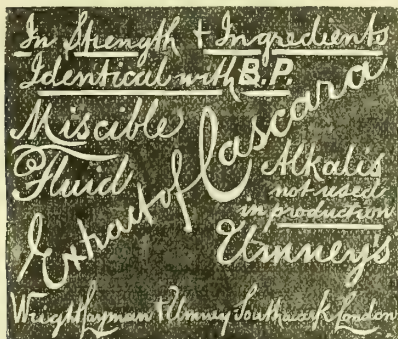 In Strength + Ingredients
Identical with B.P.
Miscible
Fluid
Extract of Cascara
Alkalis
not used
in production
Umney's
Wright Layman & Umney Southwark London